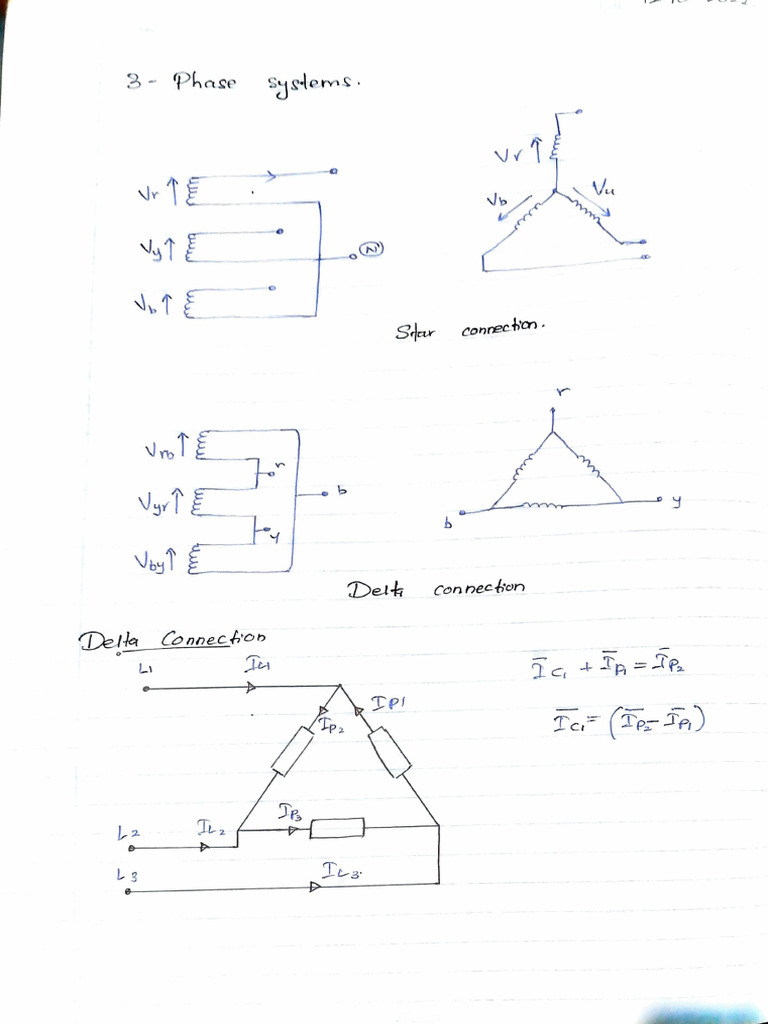 3 - Phase systems.
Vr
Vy
Vb
N
Vr
Vb
Star connection.
Vrb
r
Vyr
b
y
Vby
r
b
y
Delta connection
Delta Connection
L1
IL1
IP1
IP2
L2
IL2
IP3
L3
IL3.
I̅L1 + I̅P1 = I̅P2
I̅L1 = (I̅P2 - I̅P1)